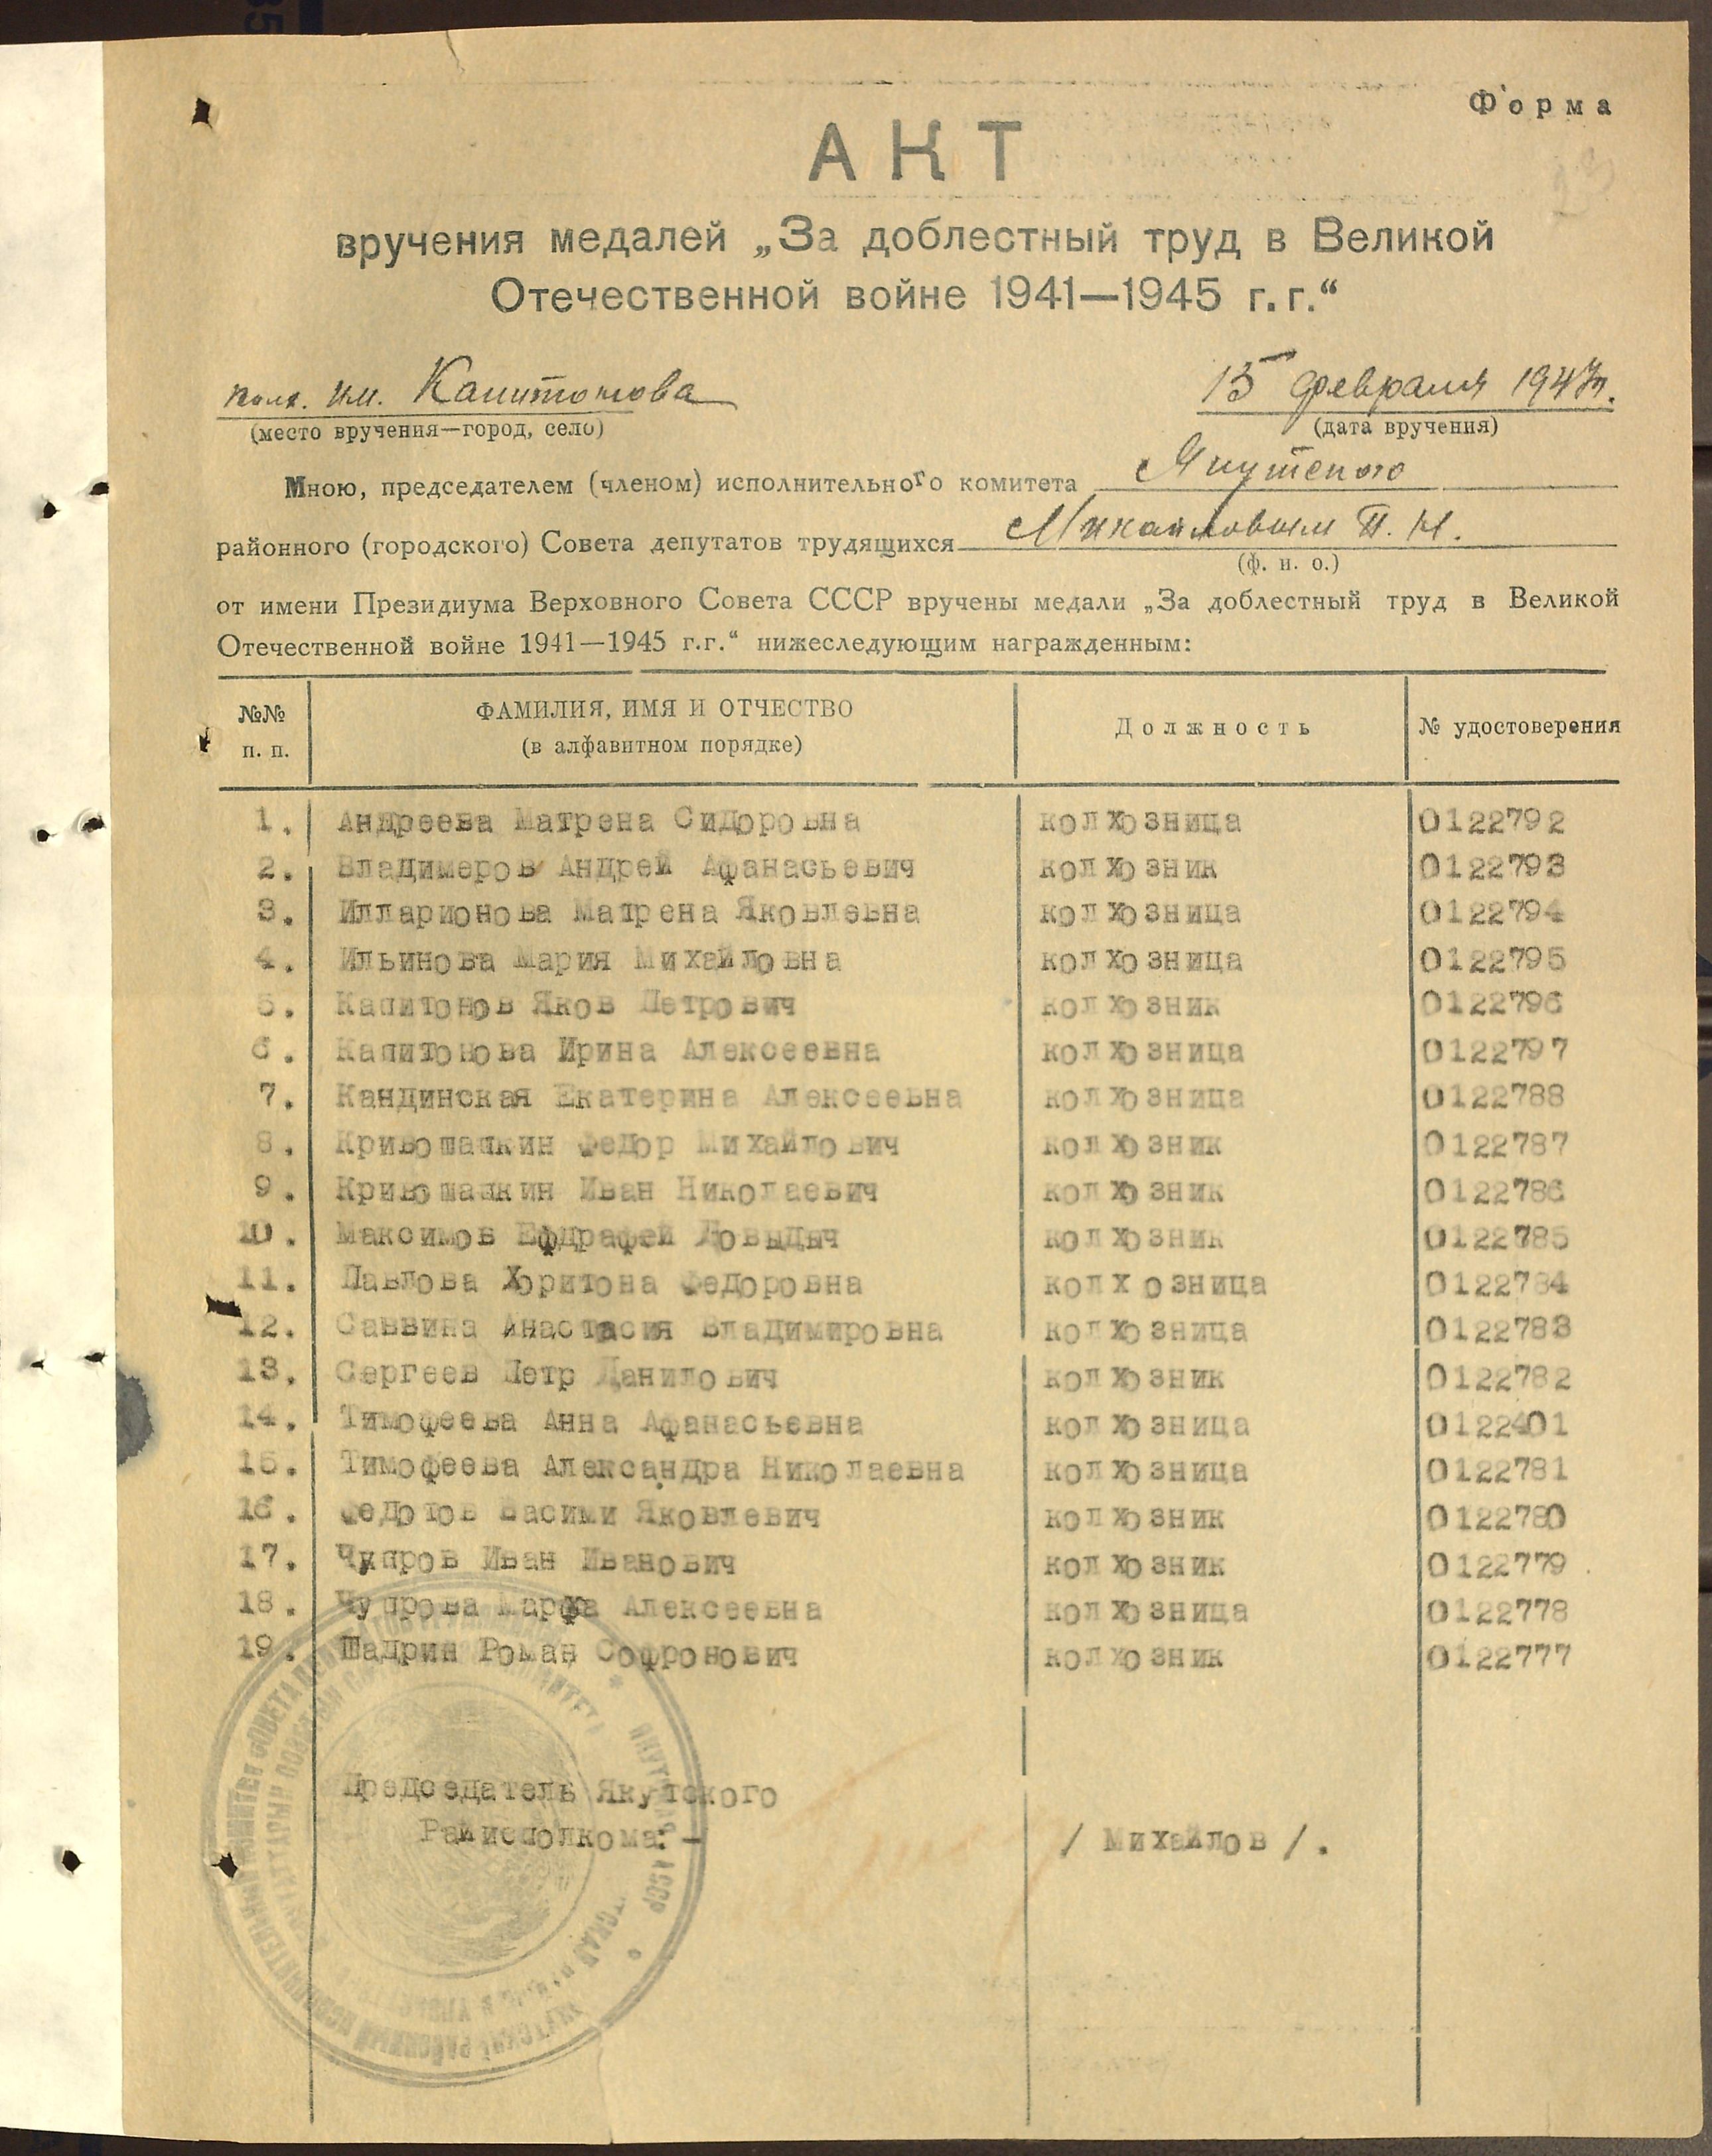 Форма
АКТ
вручения медалей „За доблестный труд в Великой
Отечественной войне 1941—1945 г. г.“
колх. им. Капитонова
15 февраля 1947г.
(место вручения—город, село)
(дата вручения)
Мною, председателем (членом) исполнительного комитета Якутского
районного (городского) Совета депутатов трудящихся Михайловым П. Н.
(ф. и. о.)
от имени Президиума Верховного Совета СССР вручены медали „За доблестный труд в Великой
Отечественной войне 1941—1945 г.г.“ нижеследующим награжденным:
№№ п. п. ФАМИЛИЯ, ИМЯ И ОТЧЕСТВО (в алфавитном порядке) Должность № удостоверения
1. Андреева Матрена Сидоровна колхозница 0122792
2. Владимеров Андрей Афанасьевич колхозник 0122793
3. Илларионова Матрена Яковлевна колхозница 0122794
4. Ильинова Мария Михайловна колхозница 0122795
5. Капитонов Яков Петрович колхозник 0122796
6. Капитонова Ирина Алексеевна колхозница 0122797
7. Кандинская Екатерина Алексеевна колхозница 0122788
8. Кривошапкин Федор Михайлович колхозник 0122787
9. Кривошапкин Иван Николаевич колхозник 0122786
10. Максимов колхозник 0122785
11. Павлова Хоритона Федоровна колхозница 0122784
12. Саввина Анастасия Владимировна колхозница 0122783
13. Сергеев Петр Данилович колхозник 0122782
14. Тимофеева Анна Афанасьевна колхозница 0122401
15. Тимофеева Александра Николаевна колхозница 0122781
16. Федотов Васими Яковлевич колхозник 0122780
17. Чупров Иван Иванович колхозник 0122779
18. Чупрова Марфа Алексеевна колхозница 0122778
19. Шадрин Роман Софронович колхозник 0122777
Председатель Якутского
Райисполкома:- / Михайлов /.